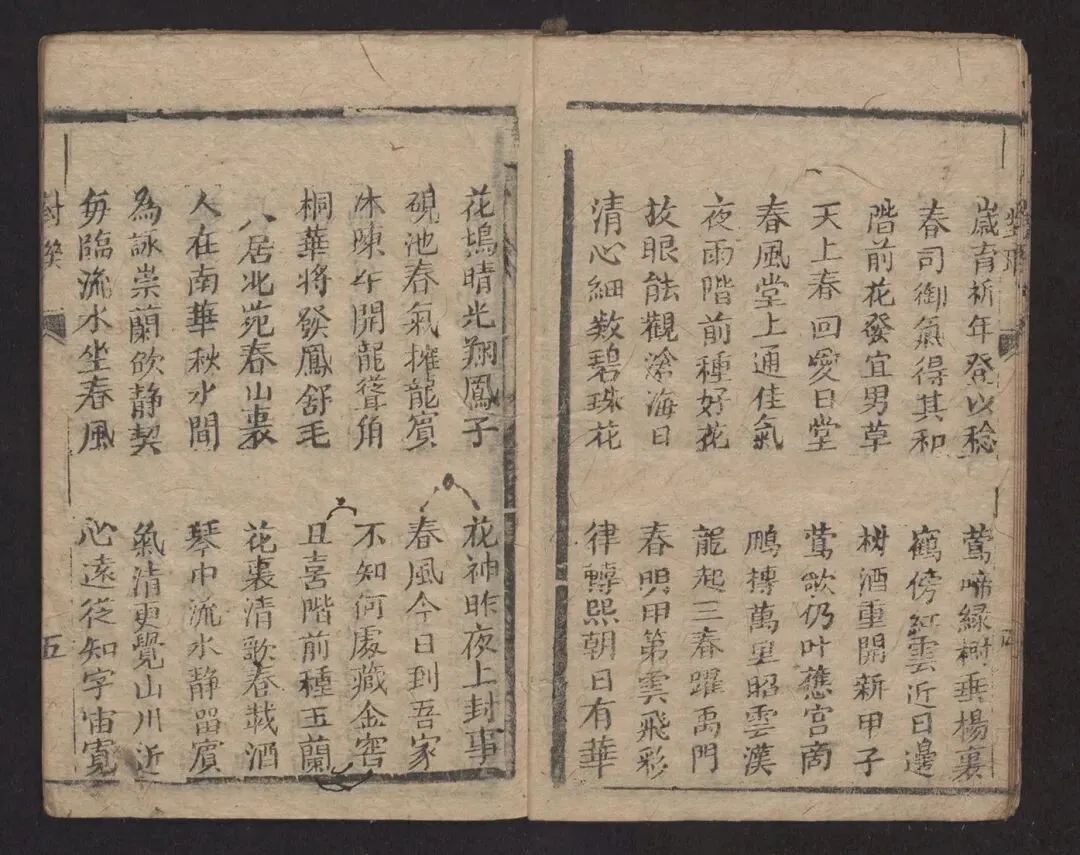 歲育祈年登以稔
鶯啼緑樹垂楊裏
春司御氣得其和
鶴傍紅雲近日邊
階前花發宜男草
樹酒重開新甲子
天上春回愛日堂
鶯歌仍叶應宮商
春風堂上通佳氣
鵬摶萬里昭雲漢
夜雨階前種好花
龍起三春躍禹門
放眼能觀滄海日
春明甲第雲飛彩
清心細数碧珠花
律轉熙朝日有華
花塢晴光翔鳳子
花神昨夜上封事
硯池春氣擁龍賓
春風今日到吾家
休陳午開龍聳角
不知何處藏金窖
桐華將發鳳舒毛
且喜階前種玉蘭
人居北苑春山裏
花裏清歌春載酒
人在南華秋水間
琴中流水静留賓
為詠崇蘭欣静契
氣清更覺山川近
每臨流水坐春風
心遠從知宇宙寬
對聯
五